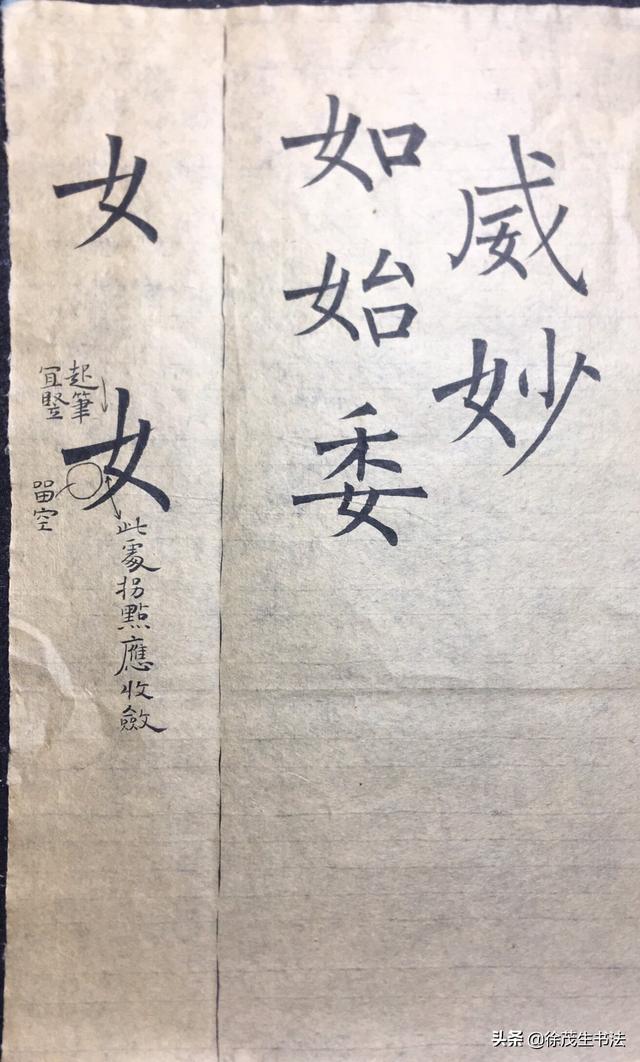 威妙
如始委
女
女
起筆
宜竪
留空
此處拐點應收斂
头条 @徐茂生书法